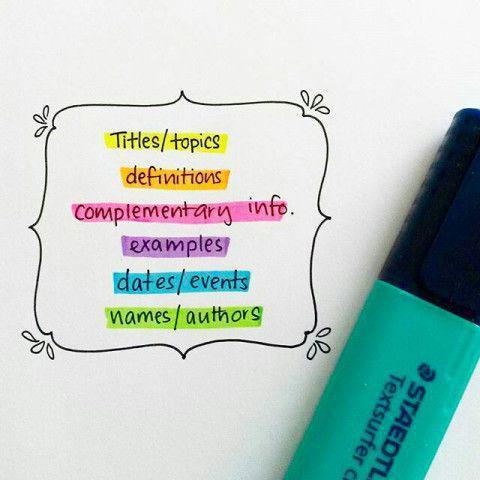 Titles/topics
definitions
complementary info.
examples
dates/events
names/authors
STAEDTL
Textsurfer c